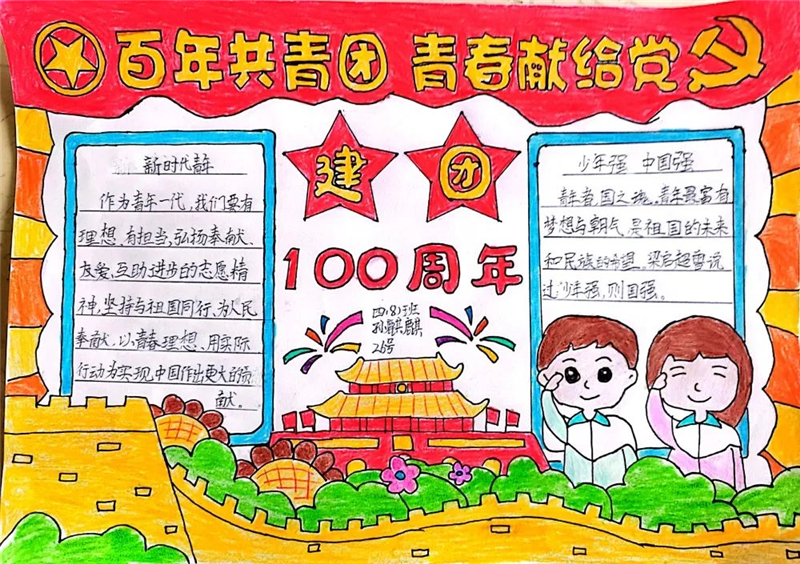 百年共青团 青春献给党
建团
100周年
四、(8)班
孙麒麒
26号
新时代青年
作为青年一代，我们要有
理想、有担当，弘扬奉献、
友爱、互助、进步的志愿精
神，坚持与祖国同行、为人民
奉献，以青春理想、用实际
行动为实现中国作出更大的贡
献。
少年强 中国强
青年者，国之魂，青年最富有
梦想与朝气，是祖国的未来
和民族的希望，梁启超曾说
过，少年强，则国强。